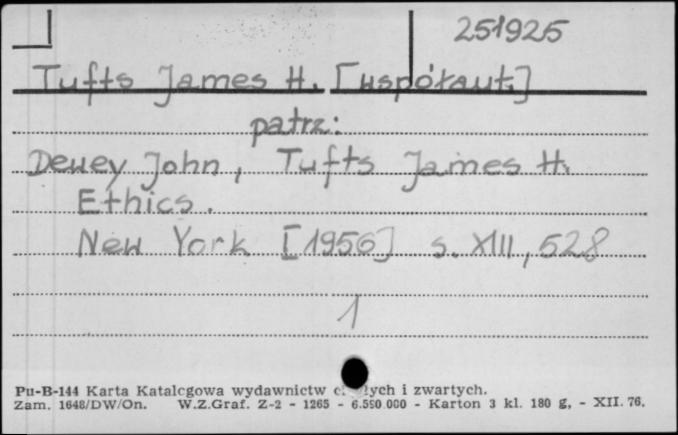 251925
Tufts James H. [współaut.]
patrz:
Dewey John, Tufts James H.
Ethics.
New York [1956] s. XIII, 528
1
Pu-B-144 Karta Katalogowa wydawnictw ciągłych i zwartych.
Zam. 1648/DW/On. W.Z.Graf. Z-2 - 1265 - 6.590.000 - Karton 3 kl. 180 g, - XII. 76.